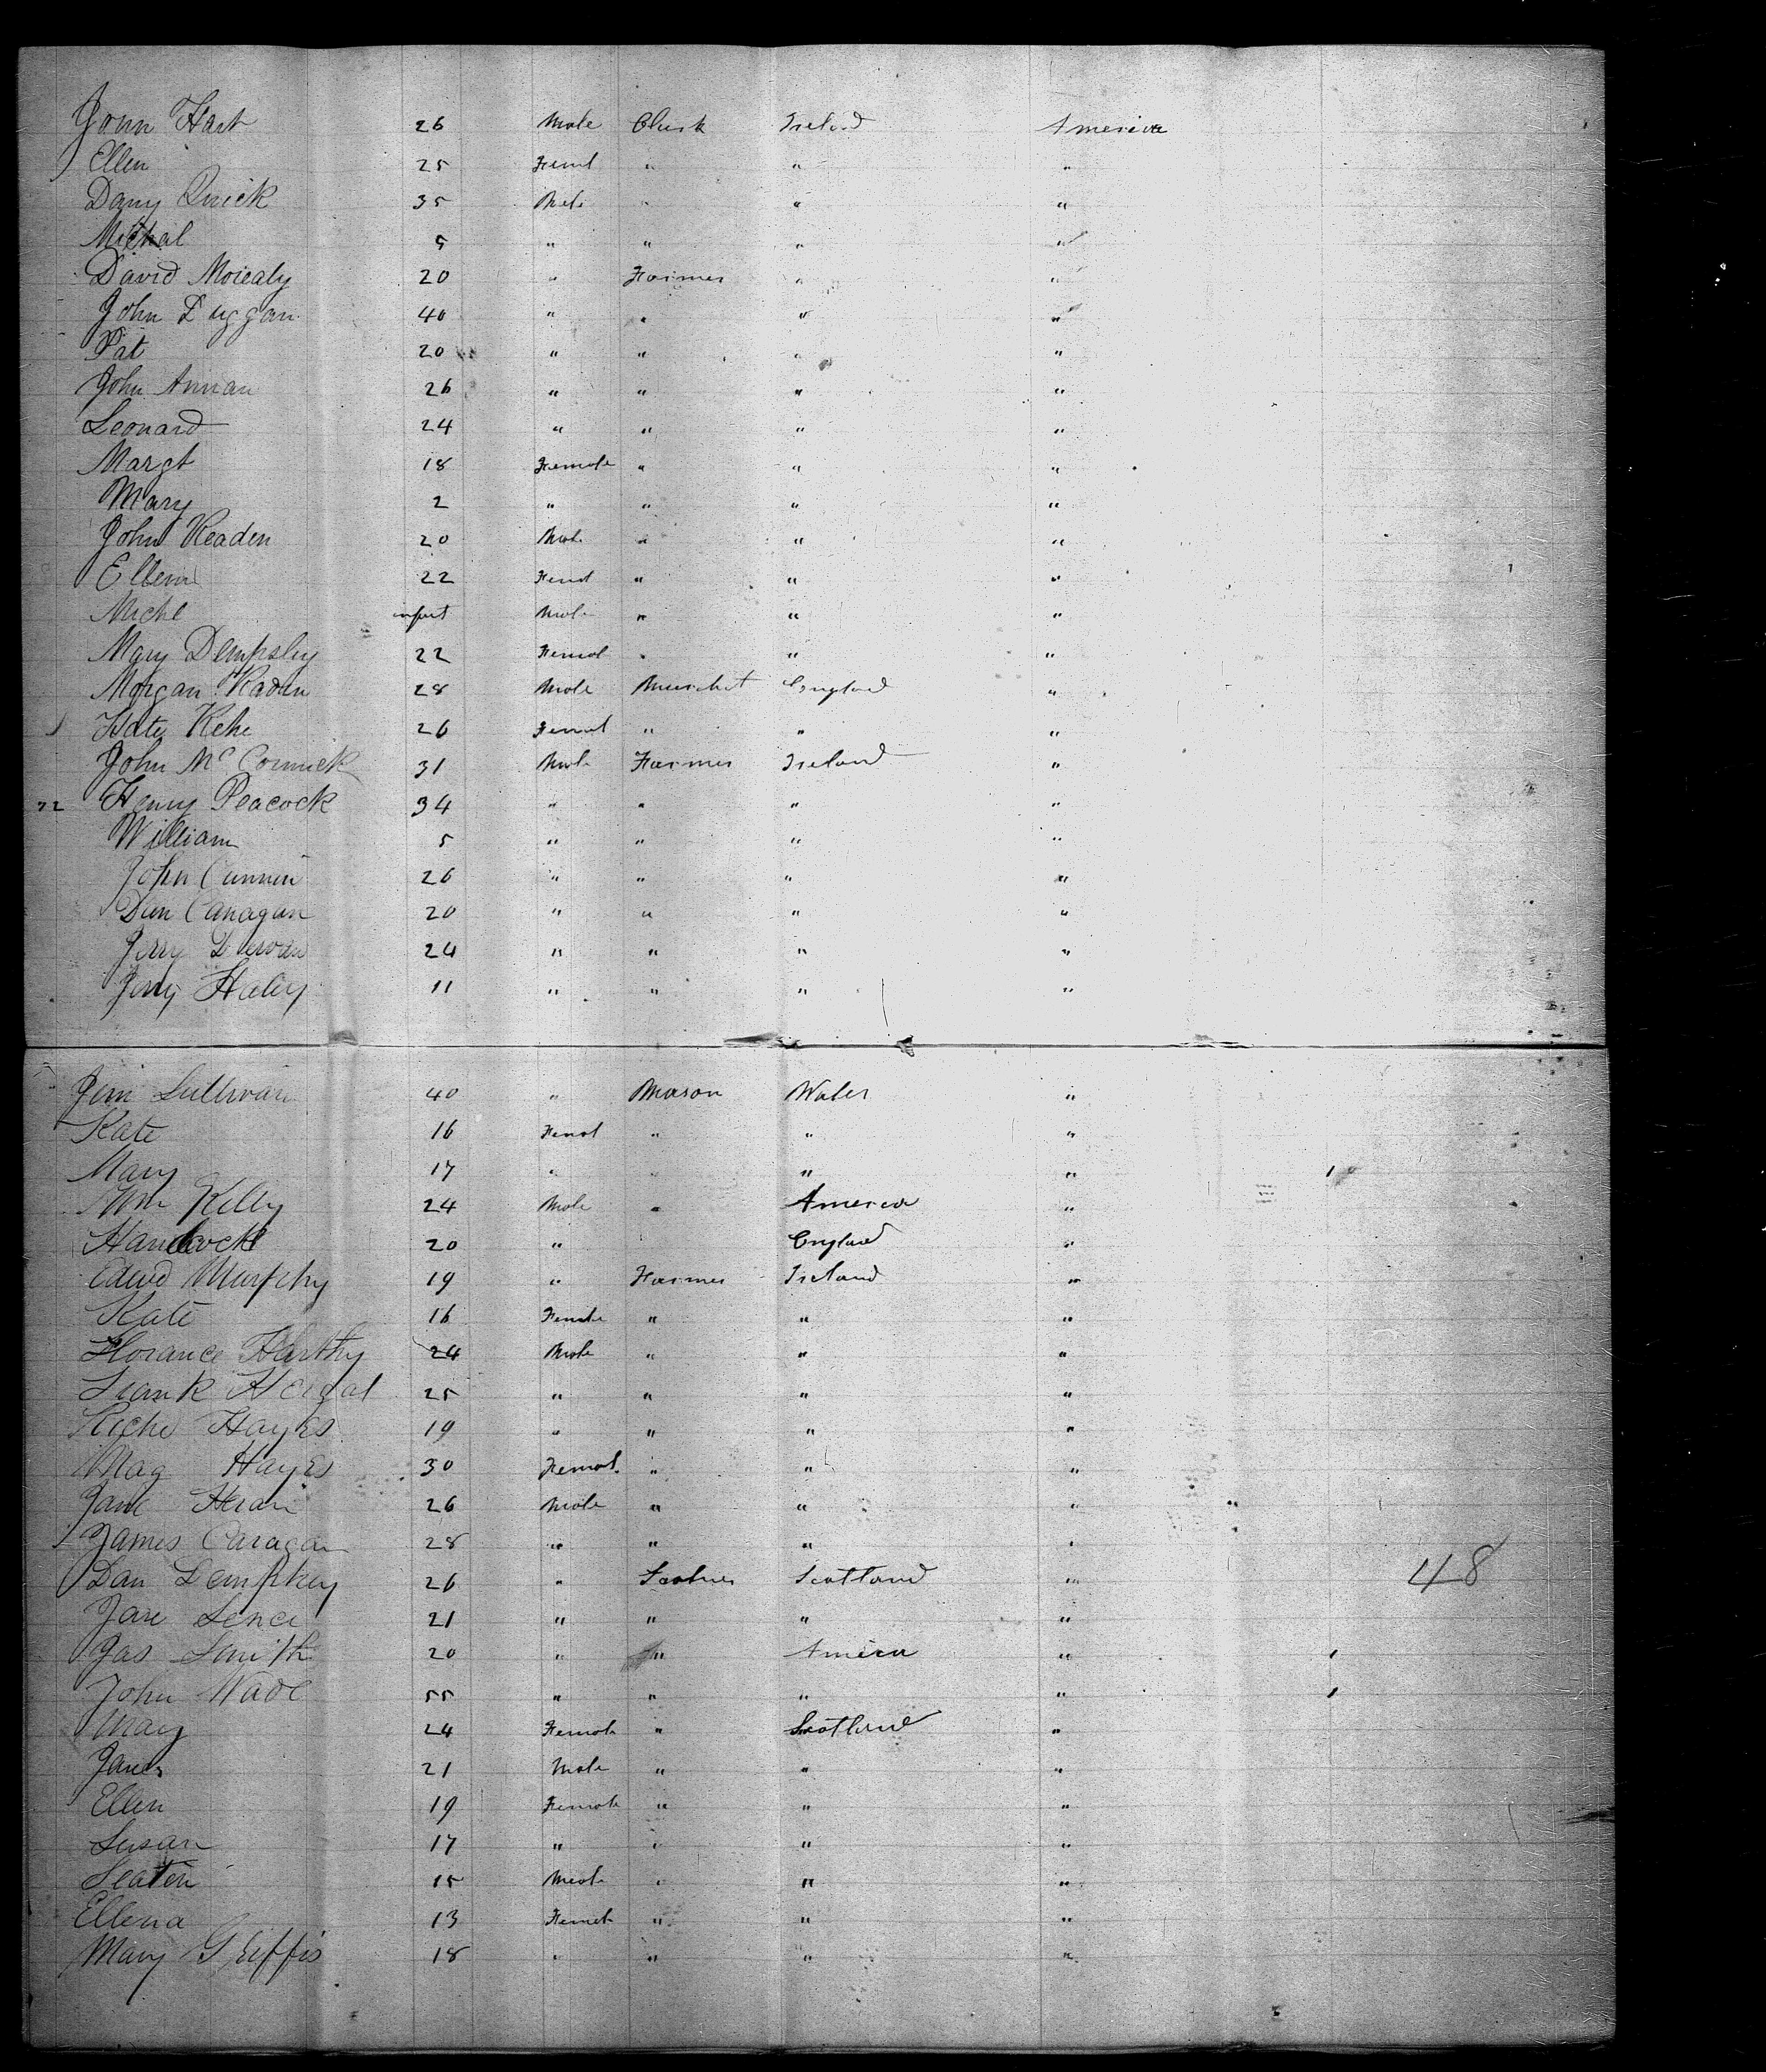 John Hart 26 Male Clerk Ireland America
Ellen 25 Femal " " "
Dany Quick 35 Male " " "
Michal 5 " " " "
David 20 " Farmer " "
John Duggan 40 " " " "
Pat 20 " " " "
John Annan 26 " " " "
Leonard 24 " " " "
Margt 18 Female " " "
Mary 2 " " " "
John Readen 20 Male " " "
Ellen 22 Femal " " "
Michl infant Male " " "
Mary Dempsey 22 Femal " " "
Morgan 28 Male England "
Kate 26 Femal " " "
John McCormick 31 Male Farmer Ireland "
72 Henry Peacock 34 " " " "
William 5 " " " "
John 26 " " " "
Dan Canagan 20 " " " "
Jerry 24 " " " "
Jerry Haley 11 " " " "
Jim Sullivan 40 " Mason Wales "
Kate 16 Femal " " "
Mary 17 " " " "
Wm Kelly 24 Male " America "
20 " England "
Edwd Murphy 19 " Farmer Ireland "
Kate 16 Female " " "
Florance 24 Male " " "
Frank 25 " " " "
Richd Hayes 19 " " " "
Mag Hayes 30 Femal " " "
Jane 26 Male " " "
James Caragan 28 " " " "
Dan Dempsey 26 " Scotland " 48
21 " " " "
Jas Smith 20 " " America "
John Wade 55 " " " "
Mary 24 Female " Scotland "
James 21 Male " " "
Ellen 19 Female " " "
Susan 17 " " " "
15 Male " " "
Ellena 13 Femal " " "
Mary Griffis 18 " " " "